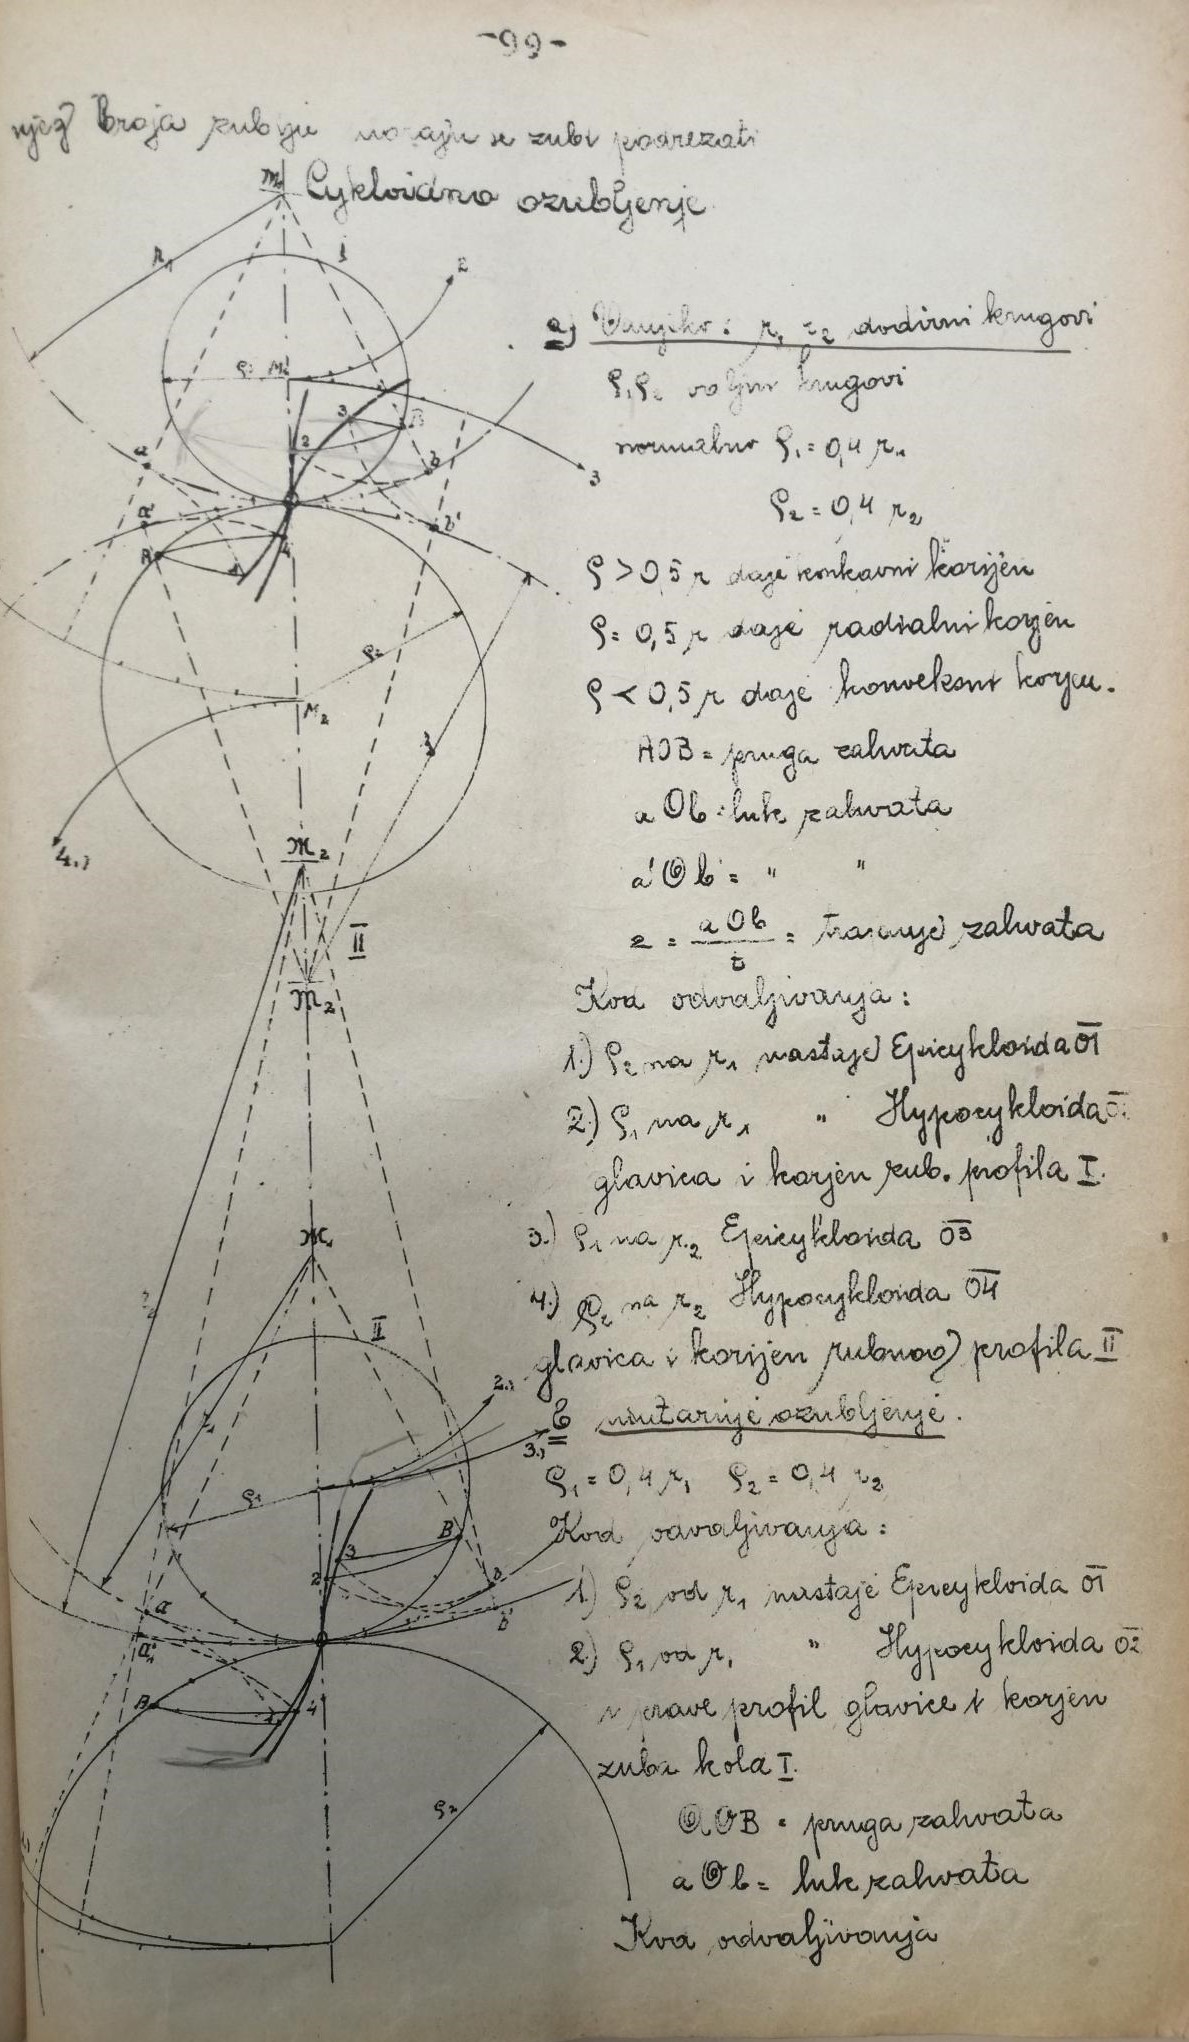 -99-
broja zubiju moraju se zubi podrezati
Cykloidno ozubljenje
a) Vanjsko: r₁ r₂ dodirni krugovi
ρ₁ρ₂ valjni krugovi
normalno ρ₁ = 0,4 r₁
ρ₂ = 0,4 r₂
ρ > 0,5 r daje konkavni korijen
ρ = 0,5 r daje radialni korjen
ρ < 0,5 r daje konveksni korjen.
AOB = pruga zahvata
aOb = luk zahvata
a'Ob' = " "
= aOb/t = trajanje zahvata
Kod odvaljivanja:
1.) ρ₂ na r₁ nastaje Epicykloida 01
2.) ρ₁ na r₁ " Hypocykloida
glavica i korjen zub. profila I.
3.) ρ₁ na r₂ Epicykloida 03
4.) ρ₂ na r₂ Hypocykloida 04
glavica i korijen zubnog profila II
nutarnje ozubljenje.
ρ₁ = 0,4 r₁ ρ₂ = 0,4 r₂
Kod odvaljivanja:
1.) ρ₂ od r₁ nastaje Epicykloida 01
2.) ρ₁ od r₁ " Hypocykloida 02
i prave profil glavice i korjen
zuba kola I.
AOB = pruga zahvata
aOb = luk zahvata
Kod odvaljivanja
r₁
1
2
ρ₁
M₁
3
B
2
3
a
b
a'
b'
O
A
4
ρ₂
M₂
4.)
M₂
II
M₂
M₁
II
2.)
3.)
ρ₁
B
3
2
a
b'
O
A
4
ρ₂